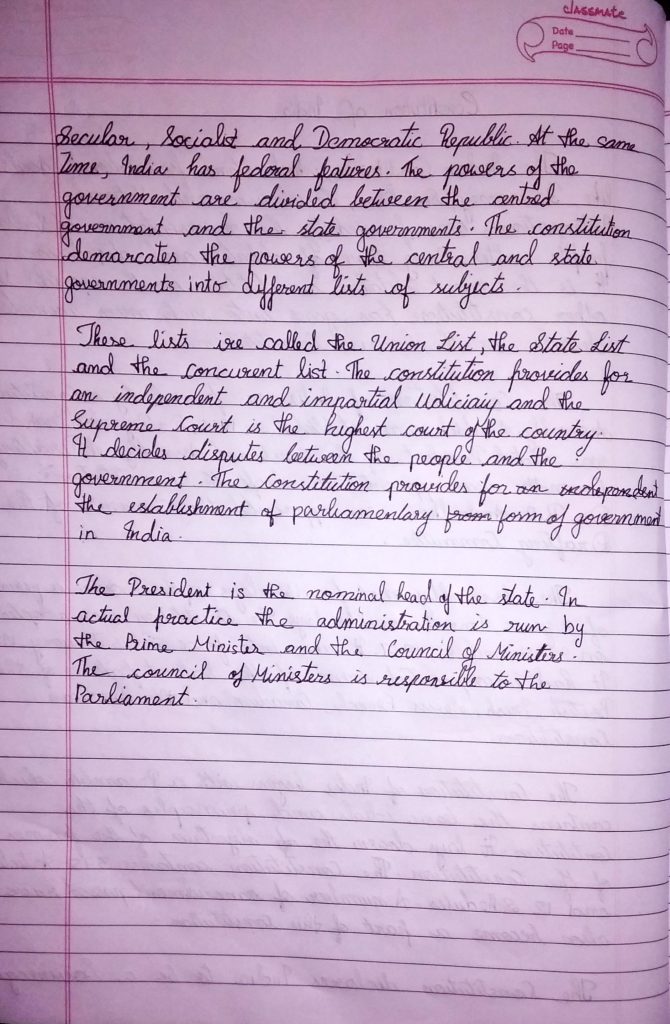 classmate
Date
Page
Secular, Socialist and Democratic Republic. At the same
Time, India has federal features. The powers of the
government are divided between the central
government and the state governments. The constitution
demarcates the powers of the central and state
governments into different lists of subjects.
These lists are called the Union List, the State List
and the concurent list. The constitution provides for
an independent and impartial Udiciaiy and the
Supreme Court is the highest court of the country.
It decides disputes between the people and the
government. The Constitution provides for an independent
the establishment of parliamentary from form of government
in India.
The President is the nominal head of the state. In
actual practice the administration is run by
the Prime Minister and the Council of Ministers.
The council of Ministers is responsible to the
Parliament.